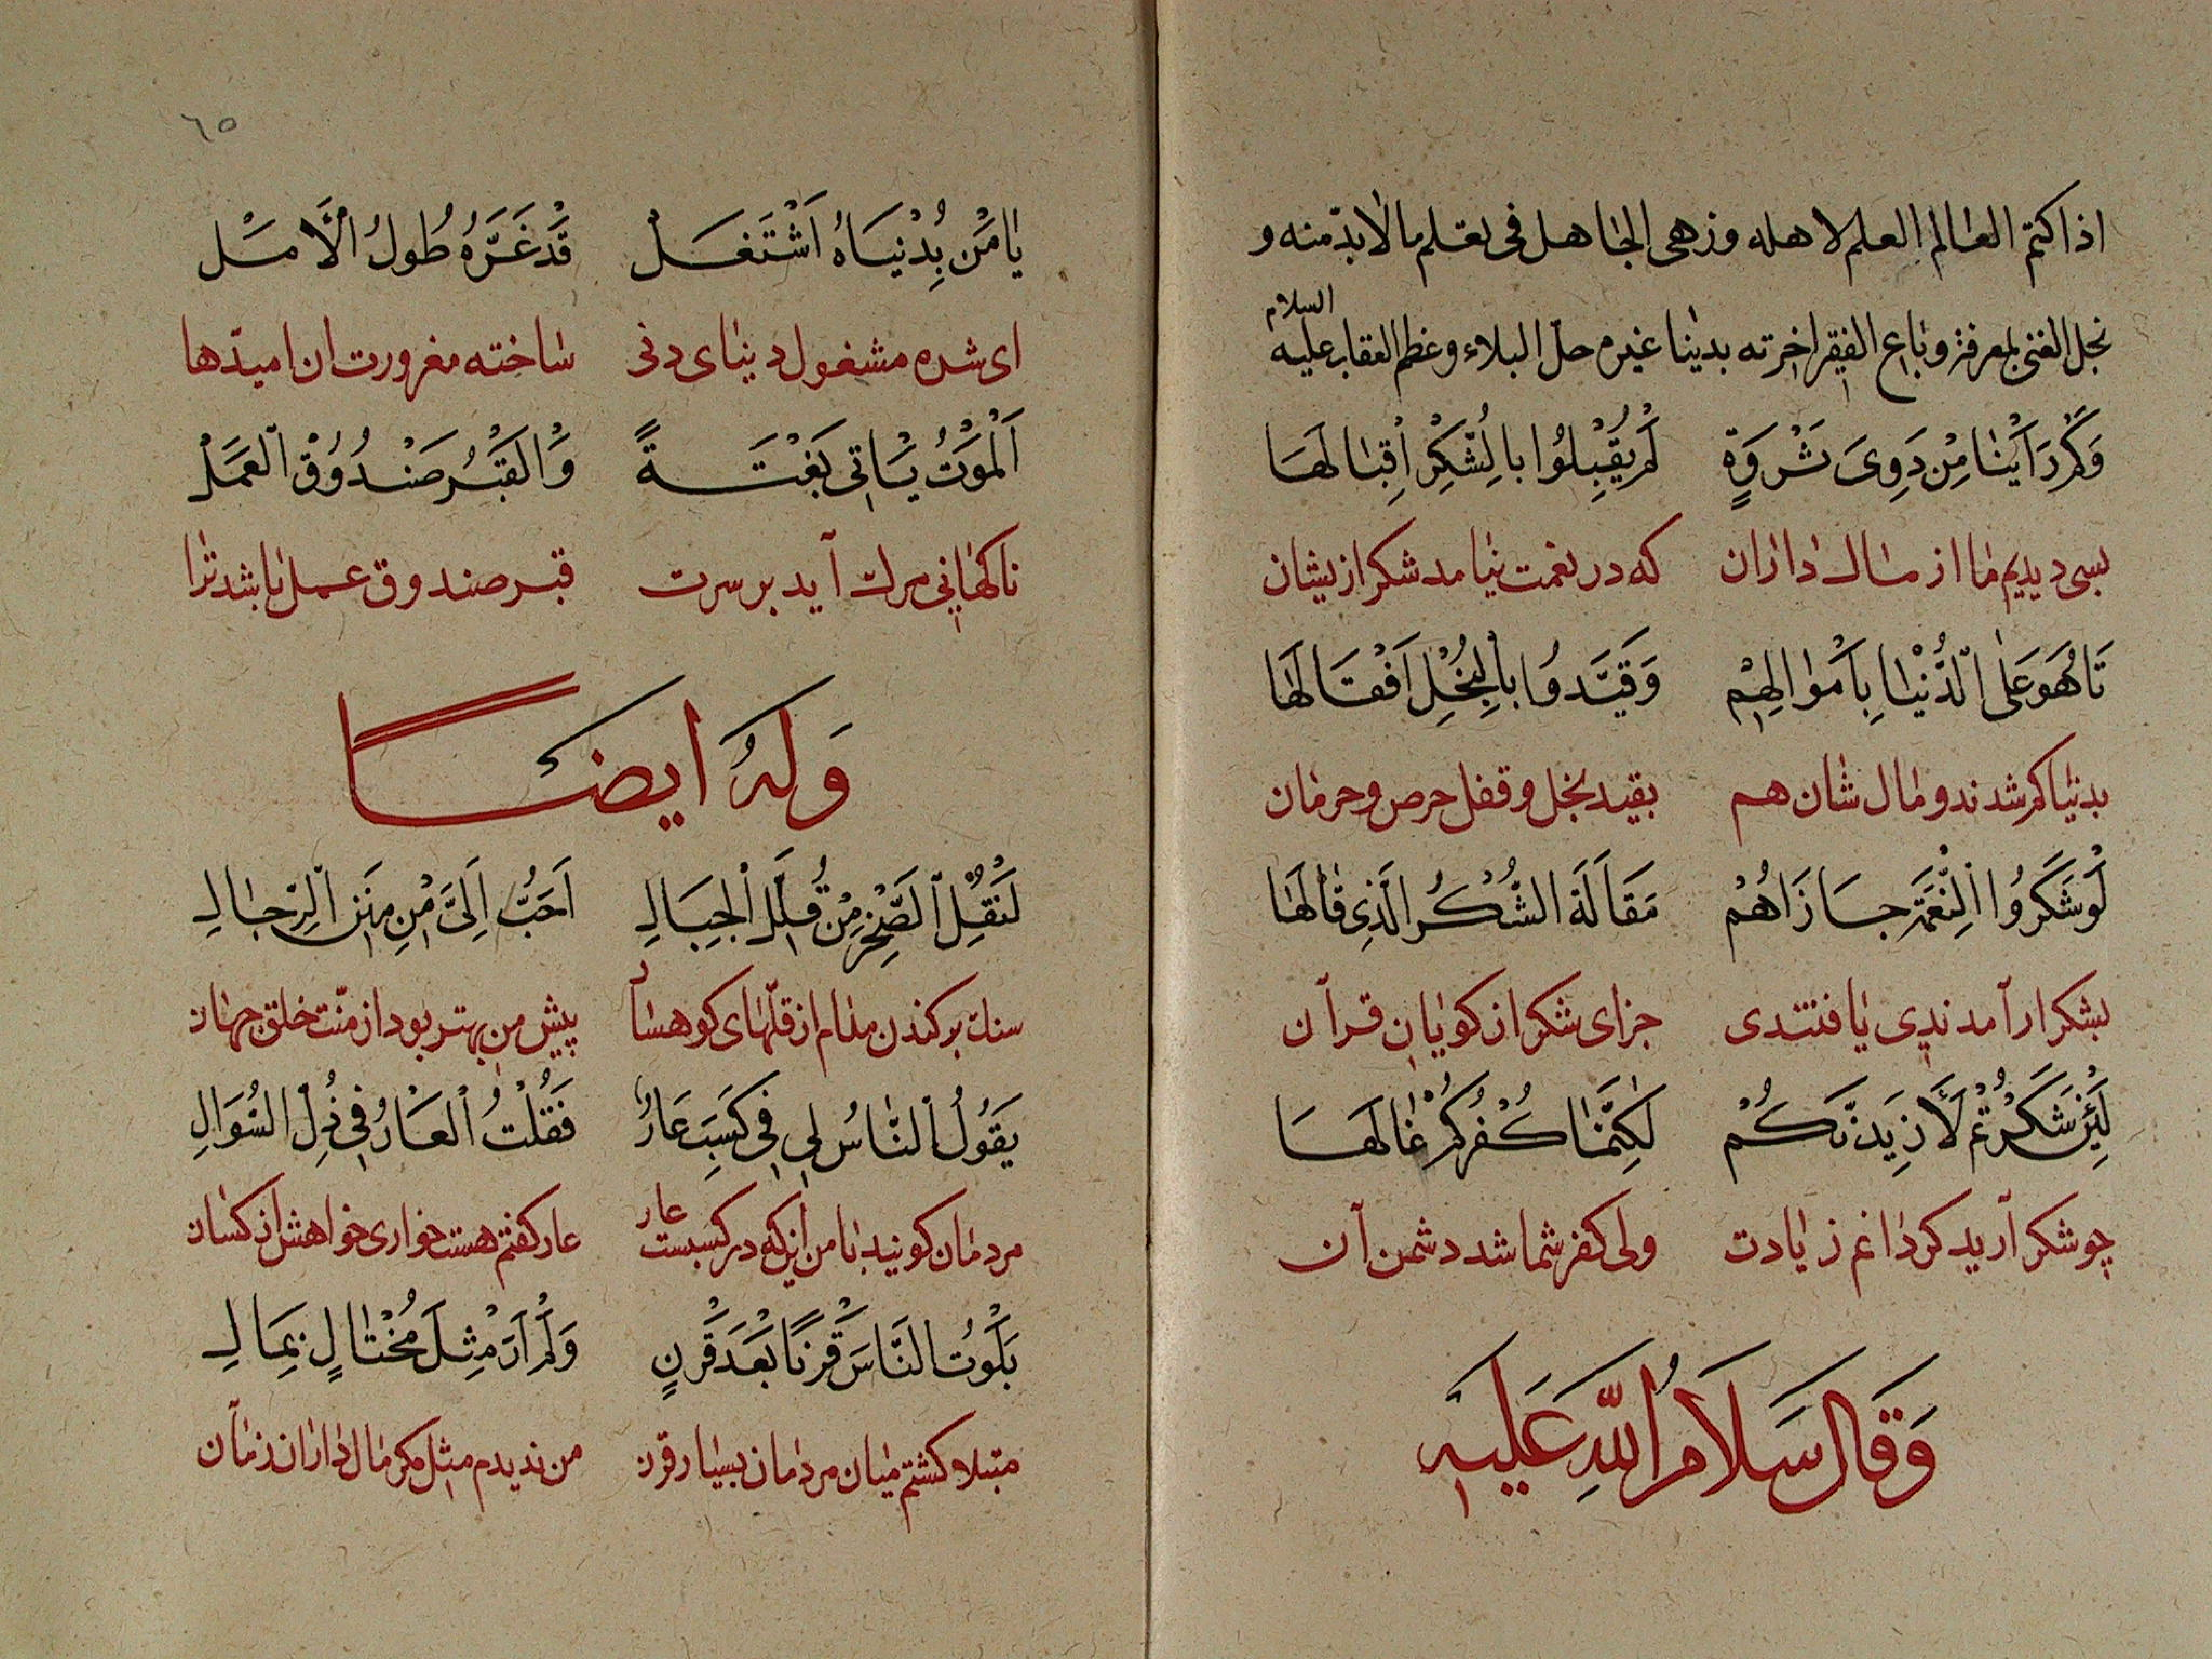 اذا كتم العالم العلم لاهله وزهى الجاهل فى تعلم مالا بدّ منه و
بخل الغنى بمعرفة وباع الفقير اخرته بدينا غيره حلّ البلاء وعظم العقاب عليه السلام
وَكَمْ رَاَيْنَا مِنْ ذَوِى ثَرْوَةٍ لَمْ يُقْبِلُوا بِالشُّكْرِ اِقْبَالَهَا
بسى ديديم ما از مال داران كه در نعمت نيامد شكر ازيشان
تَاهُو عَلَى الدُّنْيَا بِاَمْوَالِهِمْ وَقَيَّدُوا بِالْبُخْلِ اَقْفَالَهَا
بدنيا كم شدند و مال شان هم بقيد بخل و قفل حرص و حرمان
لَوْ شَكَرُوا النِّعْمَةَ جَازَاهُمْ مَقَالَةَ الشُّكْرِ الَّذِى قَالَهَا
بشكر ار آمدندى يافتندى جزاى شكر از كويان قرآن
لَئِنْ شَكَرْتُمْ لَاَزِيدَنَّكُمْ لٰكِنَّمَا كُفْرُكُمْ غَالَهَا
چو شكر آريد كرداغم زيادت ولى كفر شما شد دشمن آن
وَقَالَ سَلَامُ اللّٰهِ عَلَيْهِ
٦٥
يَا مَنْ بِدُنْيَاهُ اشْتَغَلْ قَدْ غَرَّهُ طُولُ الْاَمَلْ
اى شده مشغول دنياى دنى ساخته مغرورت ان اميدها
اَلْمَوْتُ يَاْتِى بَغْتَةً وَالْقَبْرُ صَنْدُوقُ الْعَمَلْ
ناكهانى مرك آيد بر سرت قبر صندوق عمل باشد ترا
وَلَهُ اَيضًا
لَنَقْلُ الصَّخْرِ مِنْ قُلَلِ الْجِبَالِ اَحَبُّ اِلَىَّ مِنْ مِنَنِ الرِّجَالِ
سنك بركندن مدام از قلّهاى كوهسار پيش من بهتر بود از منّت خلق جهان
يَقُولُ النَّاسُ لِى فِى كَسْبِ عَارٌ فَقُلْتُ الْعَارُ فِى ذُلِّ السُّوَالِ
مردمان كويند با من اينكه در كسبست عار عار كفتم هست خوارى خواهش از كسان
بَلَوْتُ النَّاسَ قَرْنًا بَعْدَ قَرْنٍ وَلَمْ اَرَ مِثْلَ مُخْتَالٍ بِمَالِ
مبتلا كشتم ميان مردمان بسيار قرن من نديدم مثل مكر مال داران زمان